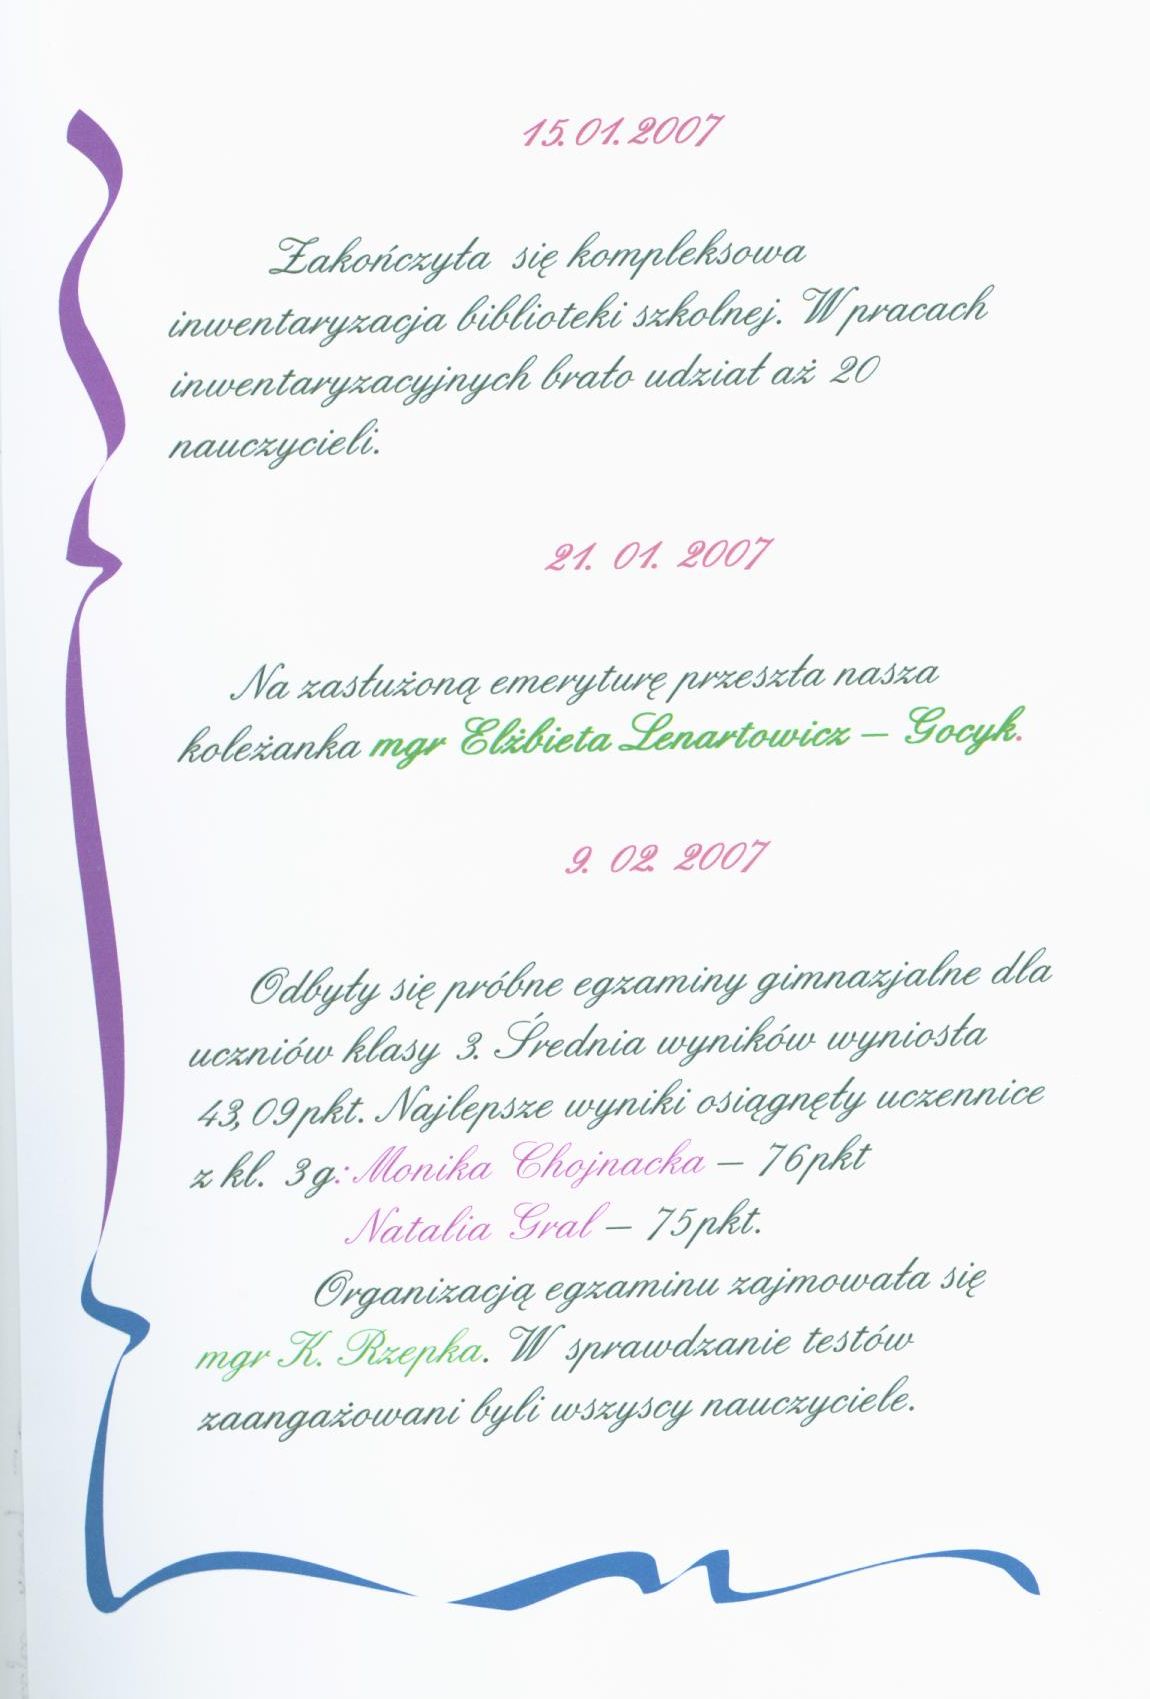 15.01.2007
Zakończyła się kompleksowa
inwentaryzacja biblioteki szkolnej. W pracach
inwentaryzacyjnych brało udział aż 20
nauczycieli.
21. 01. 2007
Na zasłużoną emeryturę przeszła nasza
koleżanka mgr Elżbieta Lenartowicz – Gocyk.
9. 02. 2007
Odbyły się próbne egzaminy gimnazjalne dla
uczniów klasy 3. Średnia wyników wyniosła
43,09pkt. Najlepsze wyniki osiągnęły uczennice
z kl. 3g: Monika Chojnacka – 76pkt
Natalia Gral – 75pkt.
Organizacją egzaminu zajmowała się
mgr K. Rzepka. W sprawdzanie testów
zaangażowani byli wszyscy nauczyciele.